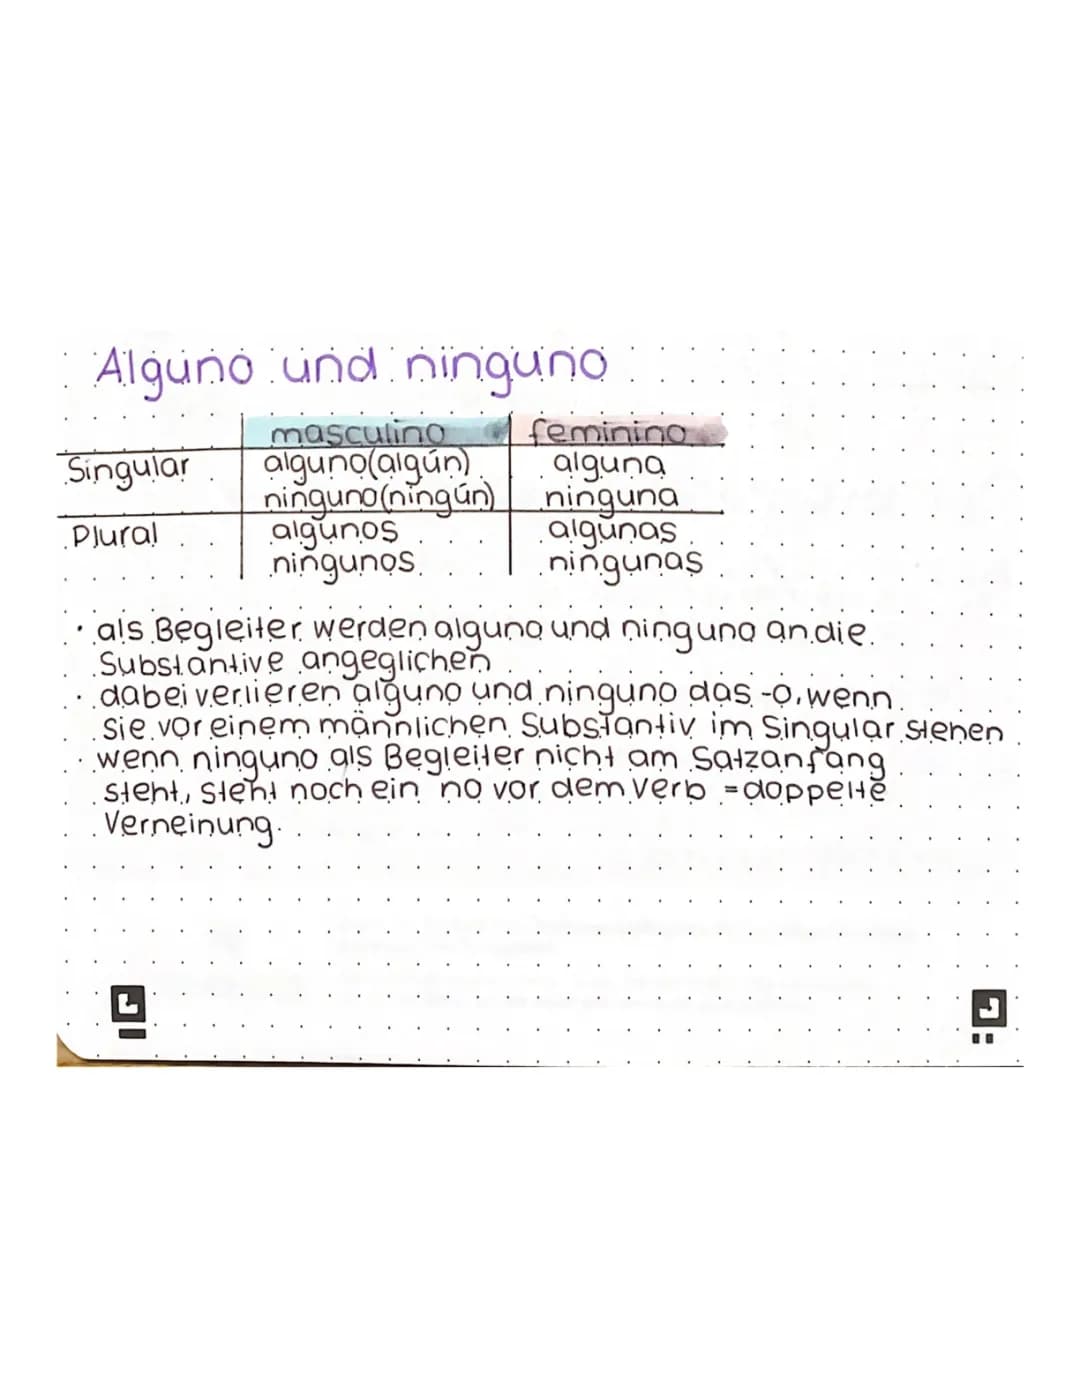 Alguno und ninguno
masculino feminino
Singular alguno(algún) alguna
ninguno(ningún) ninguna
Plural algunos algunas
ningunos ningunas
· als Begleiter werden alguno und ninguno an die
Substantive angeglichen
· dabei verlieren alguno und ninguno das -o, wenn
sie vor einem männlichen Substantiv im Singular stehen
· wenn ninguno als Begleiter nicht am Satzanfang
steht, steht noch ein no vor dem Verb = doppelte
Verneinung